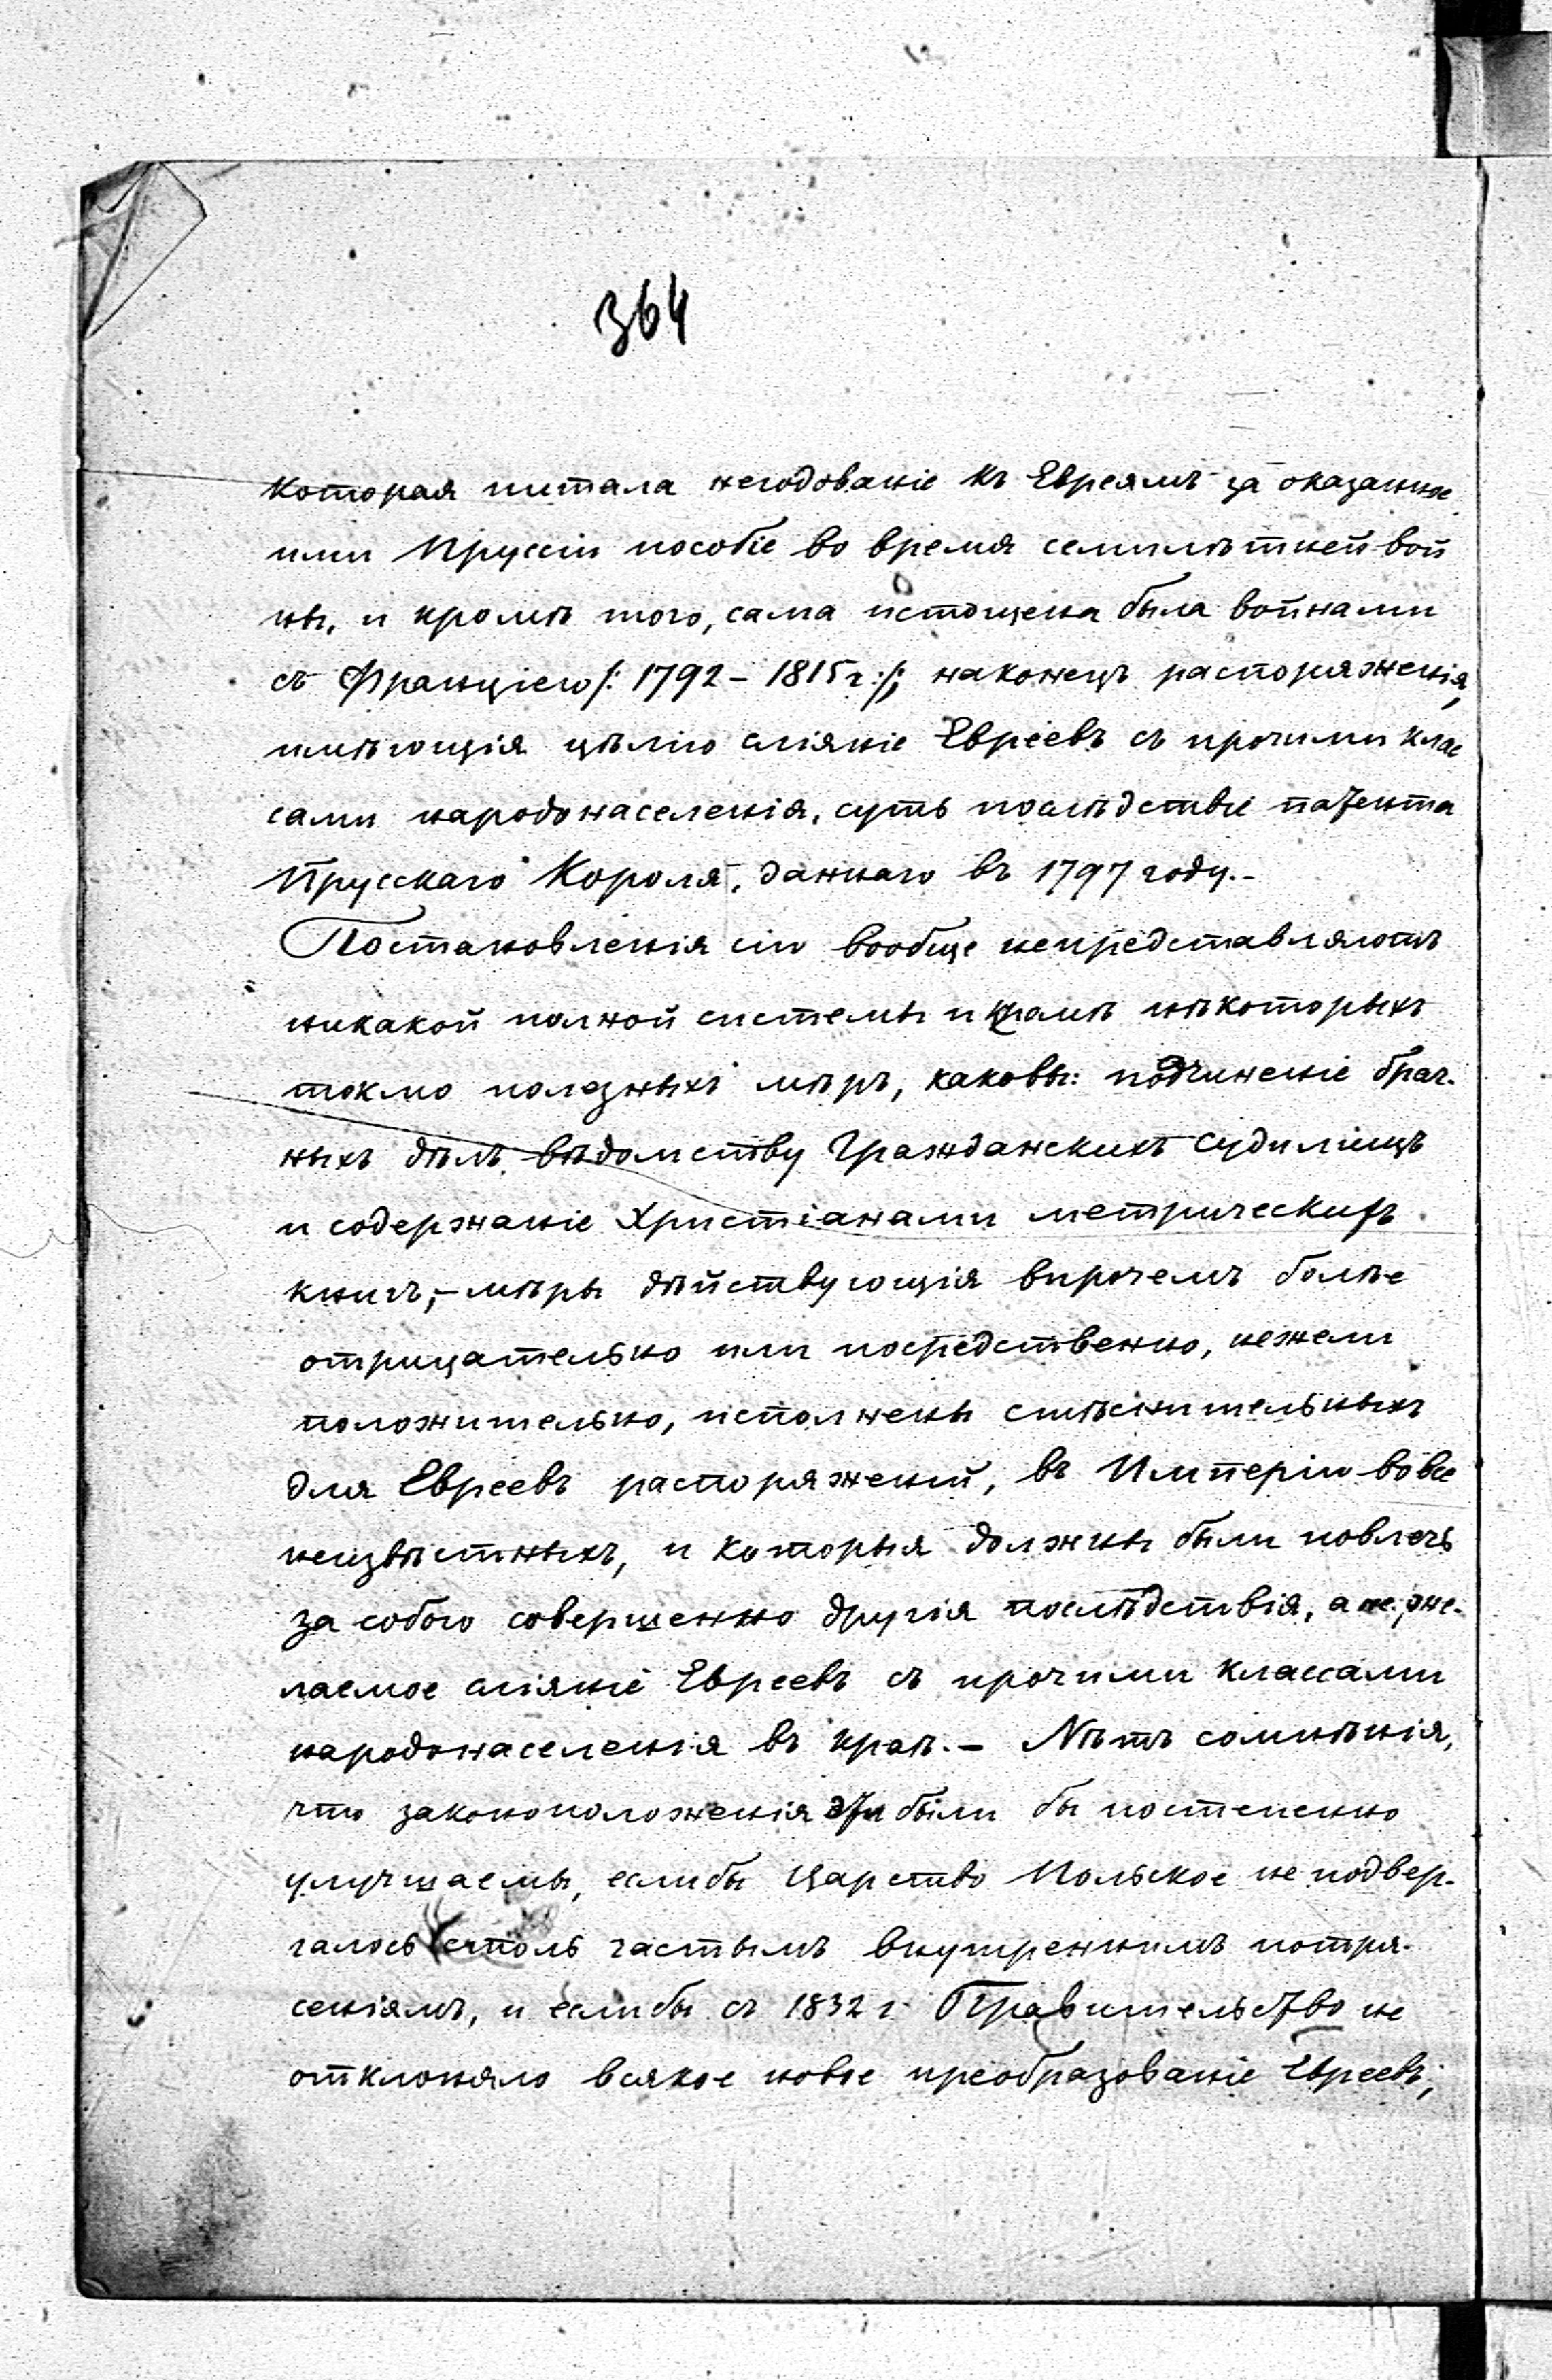 364
которая питала негодованіе къ Евреямъ за оказанное
ими Пруссіи пособіе во время семилѣтней вой
ны, и кромѣ того, сама истощена была войнами
съ Франціею /: 1792 – 1815 г :/; наконецъ распоряженія,
имѣющія цѣлію сліяніе Евреевъ съ прочими клас
сами народонаселенія, суть послѣдствіе патента
Прусскаго Короля, даннаго въ 1797 году.-
Постановленія сіи вообще непредставляютъ
никакой полной системы и кромѣ нѣкоторыхъ
токмо полезныхъ мѣръ, каковы: подчиненіе брач-
ныхъ дѣлъ вѣдомству Гражданскихъ Судилищъ
и содержаніе Христіанами метрическихъ
книгъ,- мѣры дѣйствующія впрочемъ болѣе
отрицательно или посредственно, нежели
положительно, исполнены стѣснительныхъ
для Евреевъ распоряженій, въ Имперіи вовсе
неизвѣстныхъ, и которыя должны были повлечь
за собою совершенно другія послѣдствія, а не же-
лаемое сліяніе Евреевъ съ прочими классами
народонаселенія въ краѣ.– Нѣтъ сомнѣнія,
что законоположенія эти были бы постепенно
улучшаемы, еслибы Царство Польское не подвер-
галось столь частымъ внутреннимъ потря-
сеніямъ, и еслибы съ 1832 г. Правительство не
отклоняло всякое новое преобразованіе Евреевъ;